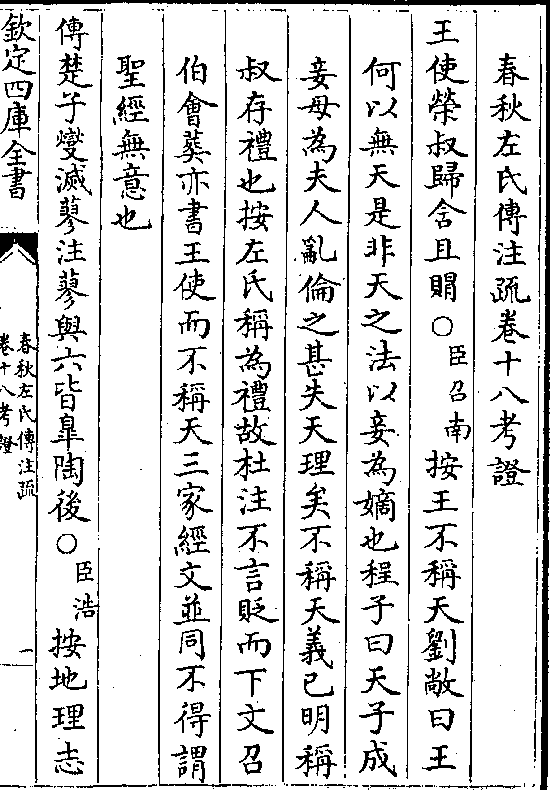 春秋左氏傳注疏卷十八考證
王使榮叔歸含且賵○臣召南按王不稱天劉敞曰王
何以無天是非天之法以妾為嫡也程子曰天子成
妾母為夫人亂倫之甚失天理矣不稱天義已明稱
叔存禮也按左氏稱為禮故杜注不言貶而下文召
伯會葬亦書王使而不稱天三家經文並同不得謂
聖經無意也
傳楚子燮滅蓼注蓼與六皆皐陶後○臣浩按地理志
欽定四庫全書
春秋左氏傳注疏
卷十八考證
一